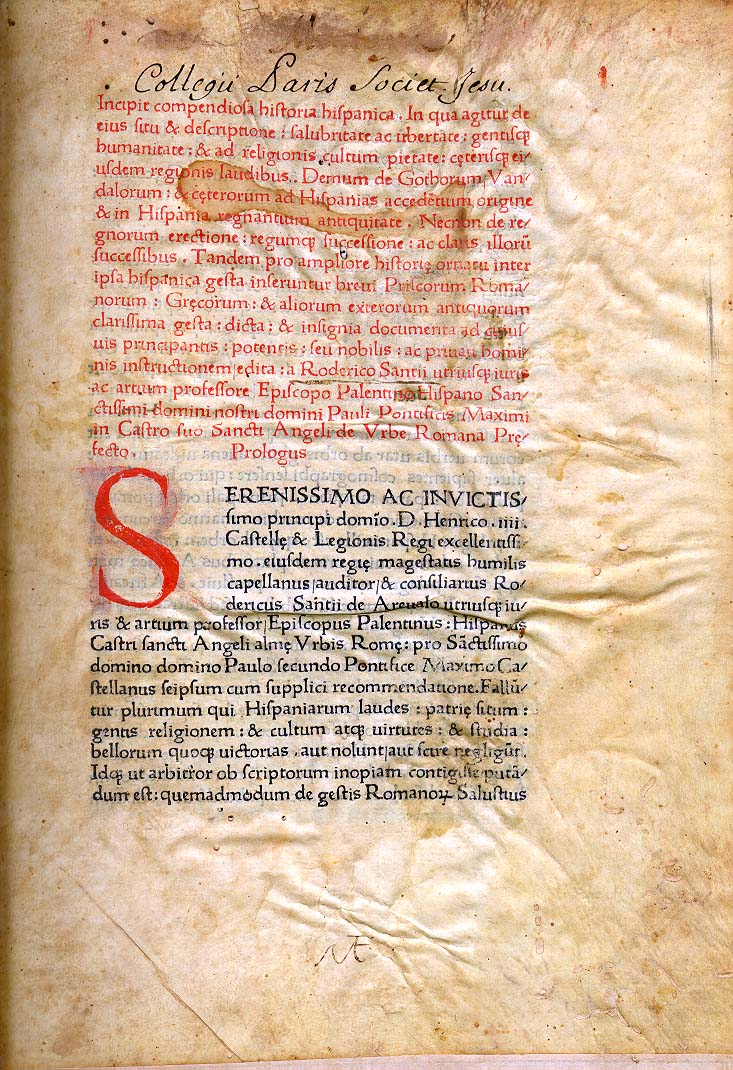 Collegii Paris Societ. Jesu.
Incipit compendiosa historia hispanica . In qua agitur de
eius situ & descriptione : salubritate ac ubertate : gentisq;
humanitate : & ad religionis cultum pietate : cęterisq; ei/
usdem regionis laudibus . Demum de Gothorum/ Van/
dalorum : & cęterorum ad Hispanias accedẽtium origine
& in Hispania regnantium antiquitate . Necnon de re/
gnorum erectione : regumq; successione : ac claris illorũ
successibus . Tandem pro ampliore historię ornatu inter
ipsa hispanica gesta inseruntur breui Priscorum Roma/
norum : Gręcorum : & aliorum exterorum antiquorum
clarissima gesta : dicta : & insignia documenta ad cuius/
uis principantis : potentis : seu nobilis : ac priuati homi/
nis instructionem/ edita : a Roderico Santii utriusq; iuris
ac artium professore Episcopo Palentino Hispano San/
ctissimi domini nostri domini Pauli Pontificis Maximi
in Castro suo Sancti Angeli de Vrbe Romana Prę/
fecto . Prologus
SERENISSIMO AC INVICTIS/
simo principi domĩo . D. Henrico . iiii .
Castellę & Legionis Regi excellentissi/
mo . eiusdem regię magestatis humilis
capellanus/ auditor/ & consiliarius Ro/
dericus Santii de Areualo utriusq; iu/
ris & artium professor/ Episcopus Palentinus : Hispanus
Castri sancti Angeli almę Vrbis Romę : pro Sãctissimo
domino domino Paulo secundo Pontifice Maximo Ca/
stellanus seipsum cum supplici recommendatione. Fallũ/
tur plurimum qui Hispaniarum laudes : patrię situm :
gentis religionem : & cultum atq; uirtutes : & studia :
bellorum quoq; uictorias . aut nolunt/ aut scire negligũt.
Idq; ut arbitror ob scriptorum inopiam contigisse putã/
dum est : quemadmodum de gestis Romanoꝝ Salustius